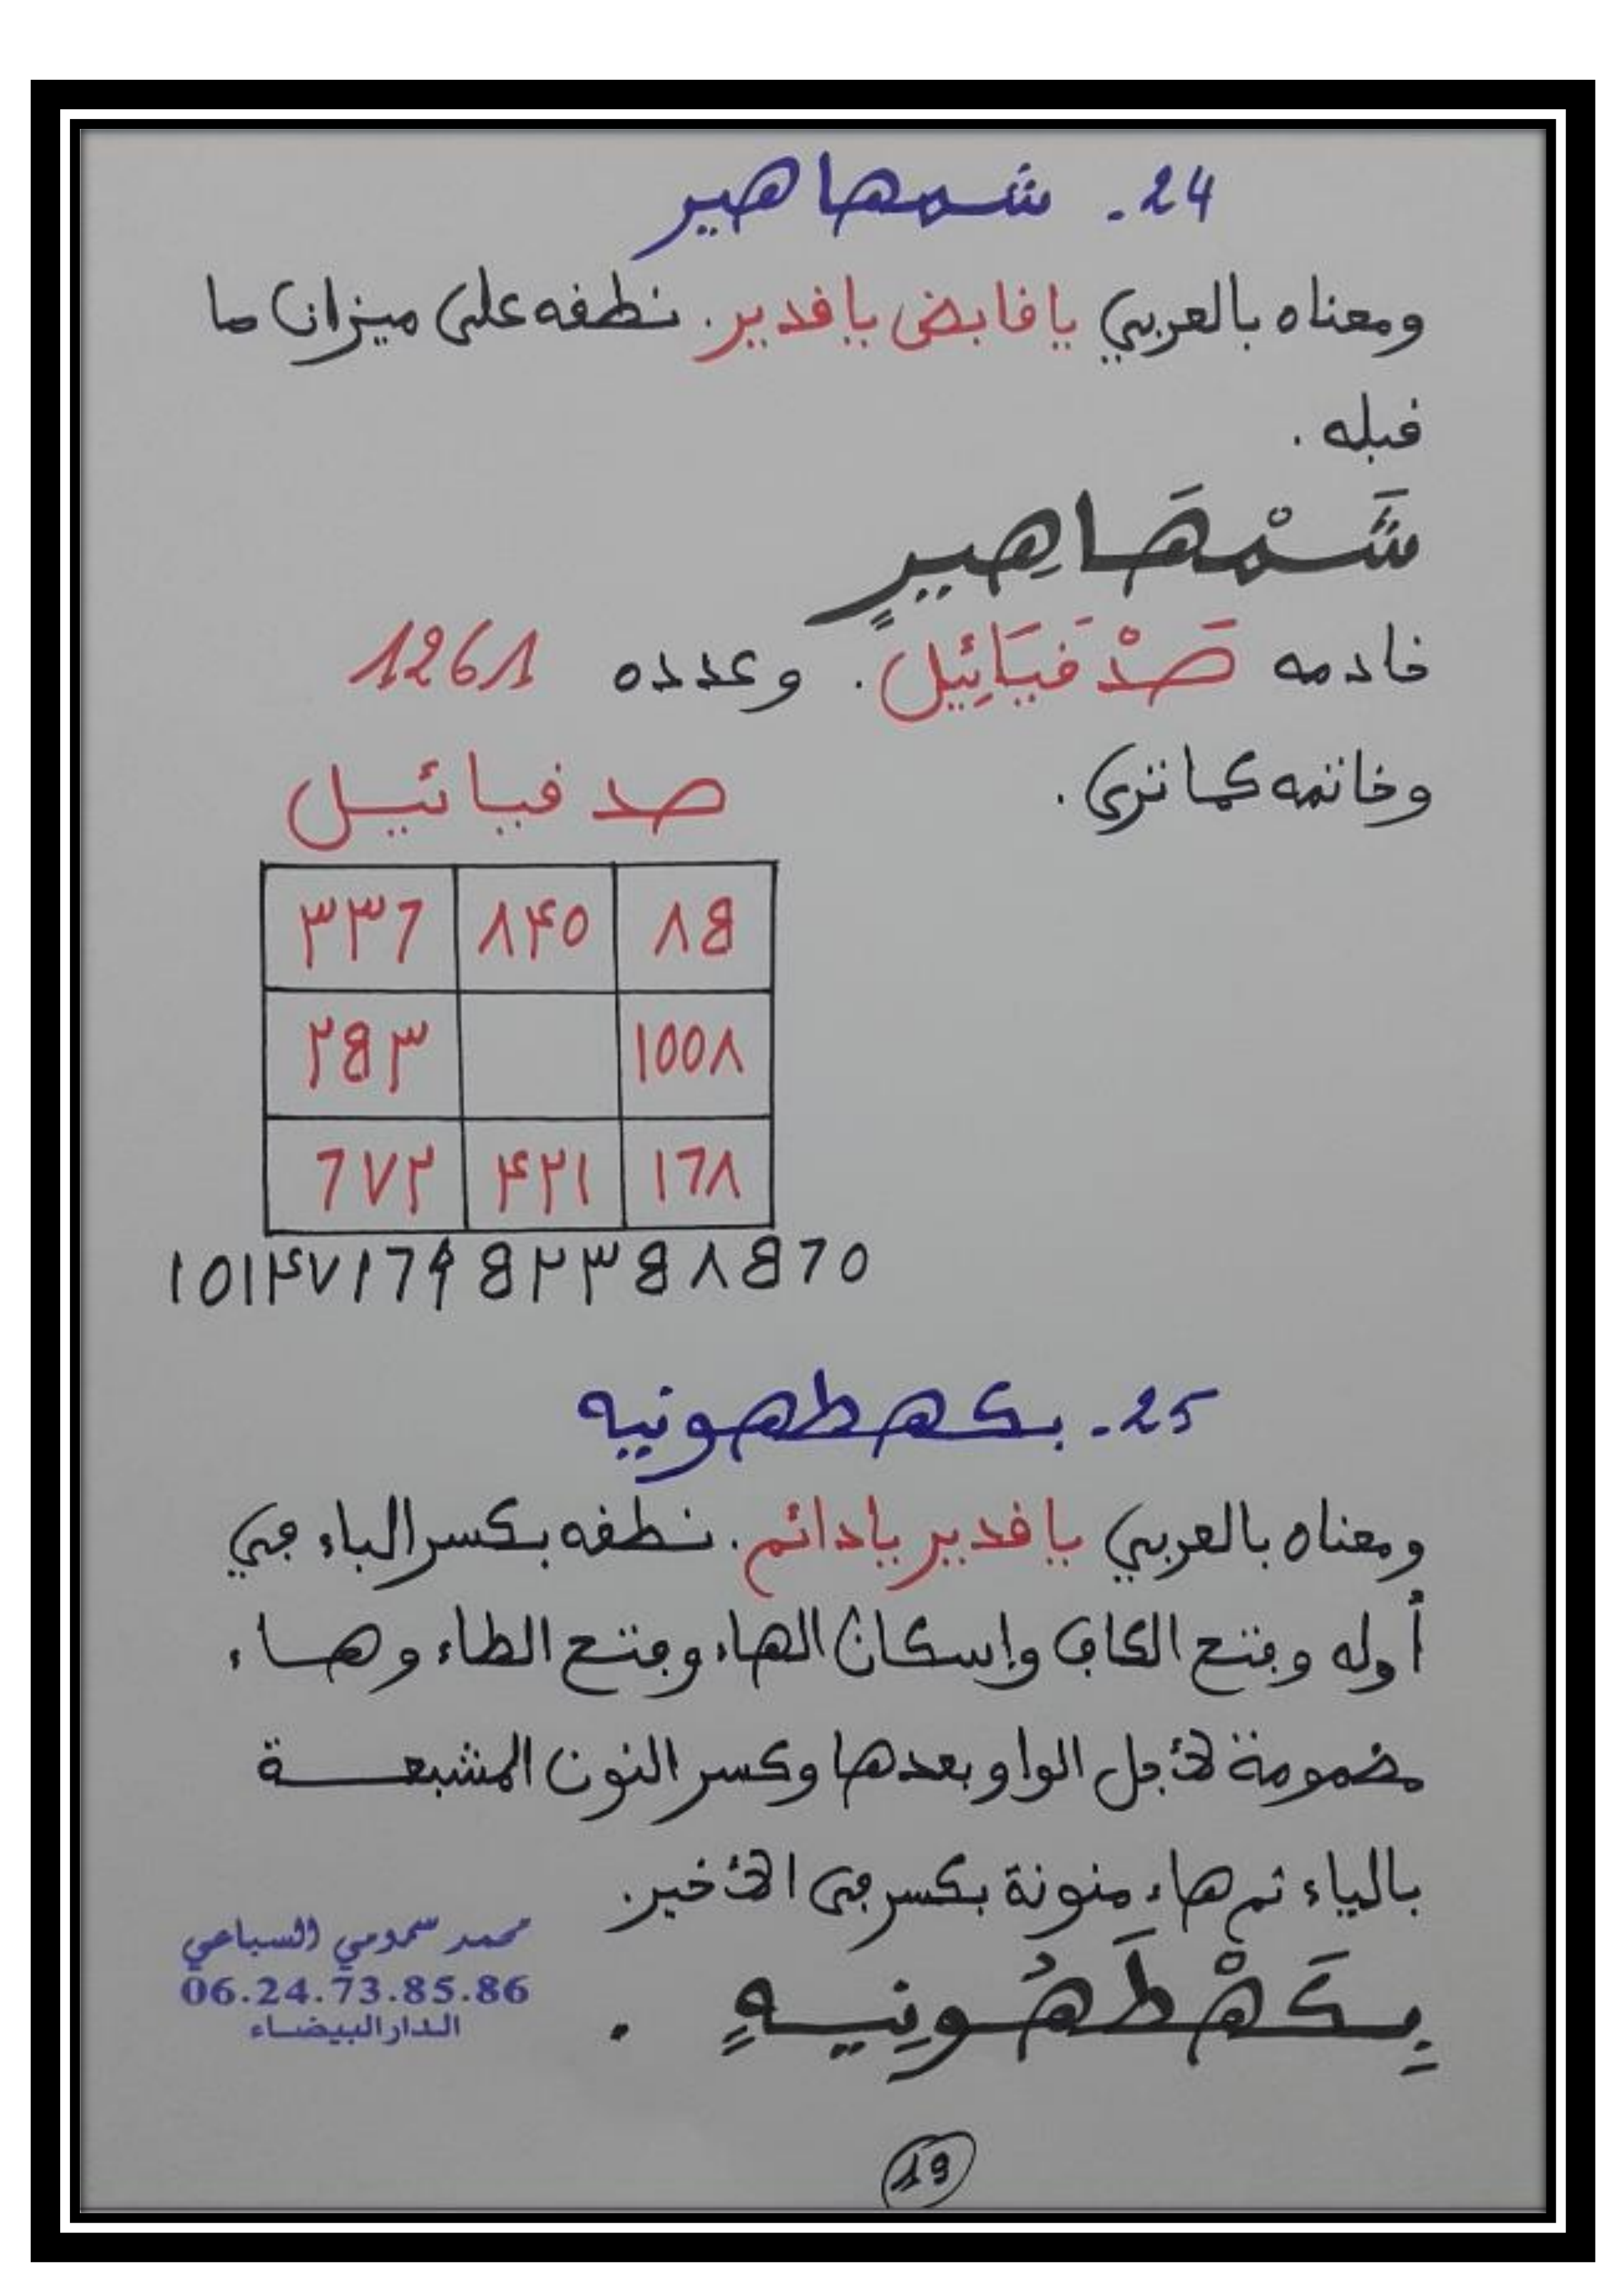 24. شمهاهير
ومعناه بالعربي يا قابض يا قدير. نطقه على ميزان ما
قبله.
شَمْهَاهِيرٍ
خادمه صَدْقَيَائِيل. وعدده 1261
وخاتمه كما ترى.
صدقيائيل
٨٥ ٨٤٠ ٣٣٦
١٠٠٨ ٢٥٣
١٦٨ ٤٢١ ٦٧٢
١٠١٤٧١٦٩٥٢٣٥٨٥٦٠
25. بكهطهونيه
ومعناه بالعربي يا قدير يا دائم. نطقه بكسر الباء في
أوله وفتح الكاف وإسكان الهاء وفتح الطاء وهاء
مضمومة لأجل الواو بعدها وكسر النون المشبعة
بالياء ثم هاء منونة بكسر في الأخير.
بِكَهْطَهُونِيهٍ.
محمد سمومي السباعي
06.24.73.85.86
الدار البيضاء
19